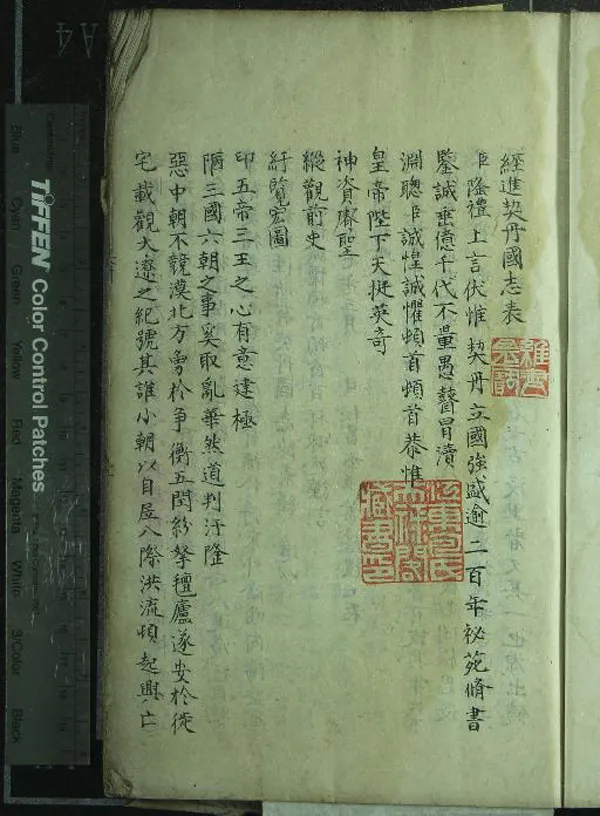 經進契丹國志表
臣隆禮上言伏惟契丹立國強盛逾二百年祕苑脩書
鑒誠垂億千代不量愚瞽冒瀆
淵聰臣誠惶誠懼頓首頓首恭惟
皇帝陛下天挺英奇
神資聖
縱觀前史
紆覽宏圖
印五帝三王之心有意建極
陋三國六朝之事奚取亂華然道判汙隆
惡中朝不競漠北方勇於爭衡五閏紛拏氊廬遂安於徙
宅載觀大遼之紀號其誰小朝以自居八際洪流頓起興亡
江東包氏
天祿閣
藏書印
A4
TIFFEN Color Control Patches
Blue
Cyan
Green
Yellow
Red
Magenta
White
3/Color
Black